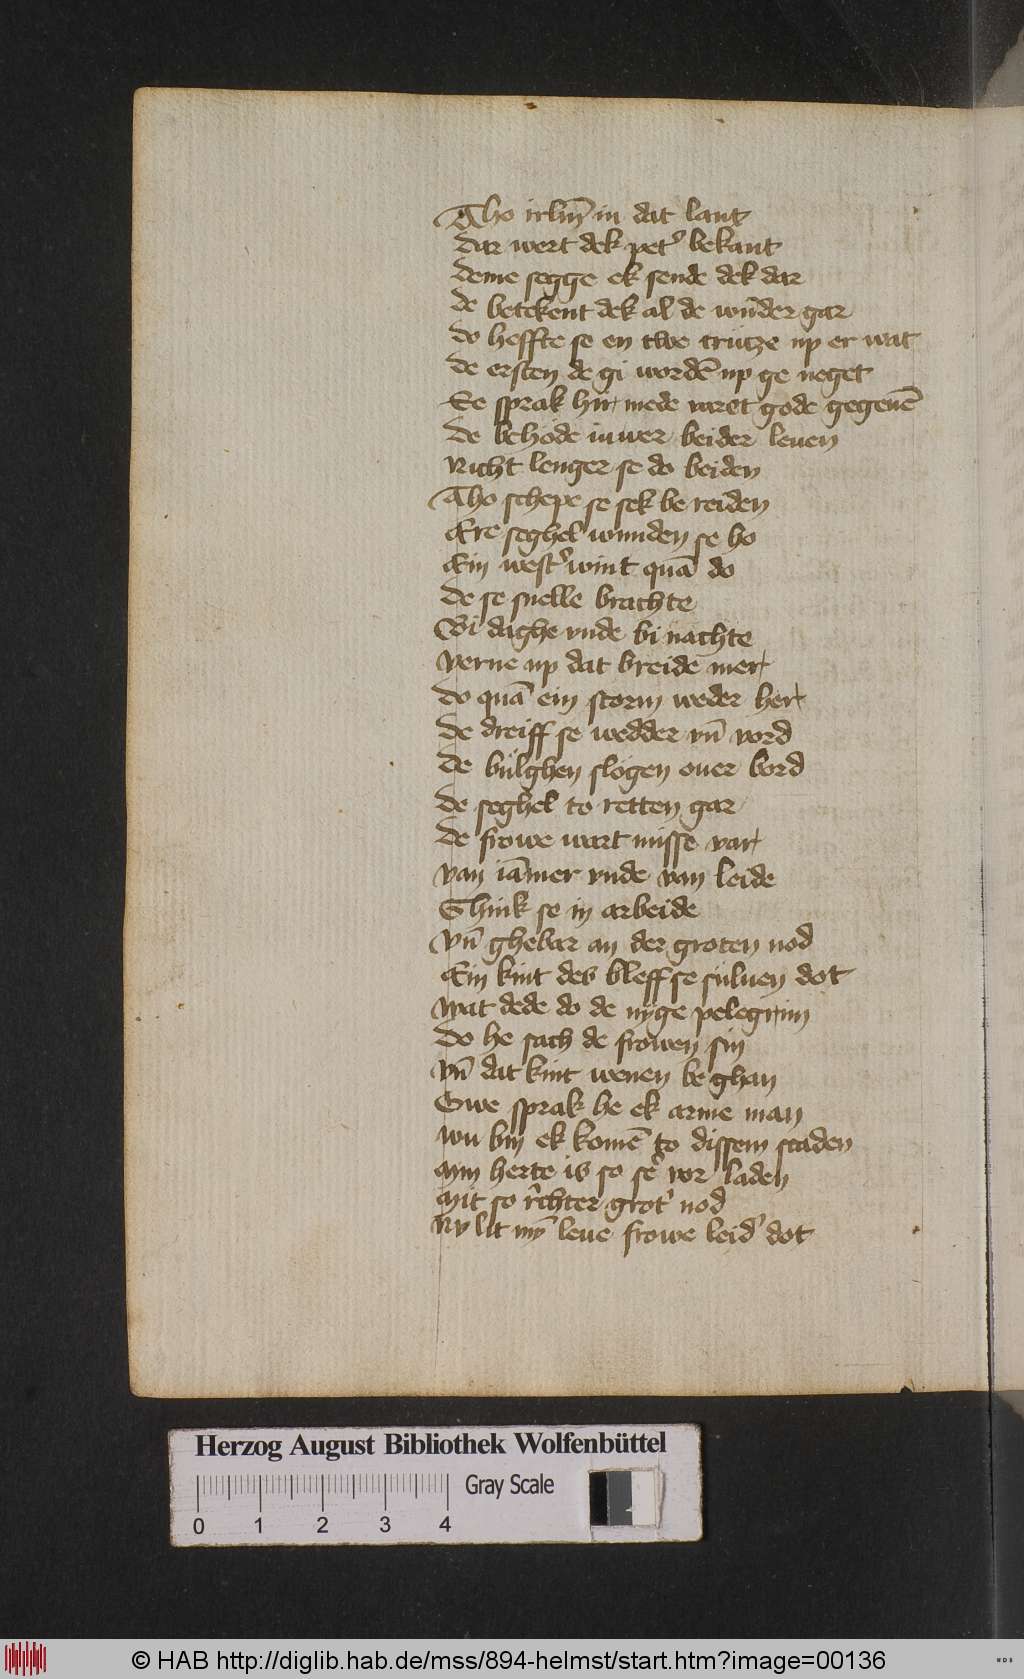 Tho irlm̄ in dat lant
dar wert dek pet' bekant
deme segge ek sende dek dar
de betekent dek al de wūder gar
do heffte se en twe crutze up er wat
de ersten de gi wordē up ge neget
Se sprak hir mede weret gode gegeuē
de behode iuwer beider leuen
Nicht lenger se do beiden
Tho schepe se sek be reiden
Ere seghel wunden se ho
Ein west' wint quā do
de se snelle brachte
Bi daghe vnde bi nachte
verne up dat breide mer
do quā ein storm weder her
de dreiff se wedder vn̄ vord
de bulghen slogen ouer bord
de seghel to retten gar
de frowe wart misse var
van iāmer vnde van leide
Ghink se in arbeide
vn̄ ghebar an der groten nod
Ein kint des bleff se suluen dot
wat dede do de nyge pelegrim
do he sach de frowen sin
vn̄ dat kint wenen be ghan
Owe sprak he ek arme man
wu bin ek komē to dissem scaden
min herte is so se' vor laden
mit so rechter grot' nod
Ny lit mȳ leue frowe leid' dot
Herzog August Bibliothek Wolfenbüttel
Gray Scale
0 1 2 3 4
© HAB http://diglib.hab.de/mss/894-helmst/start.htm?image=00136